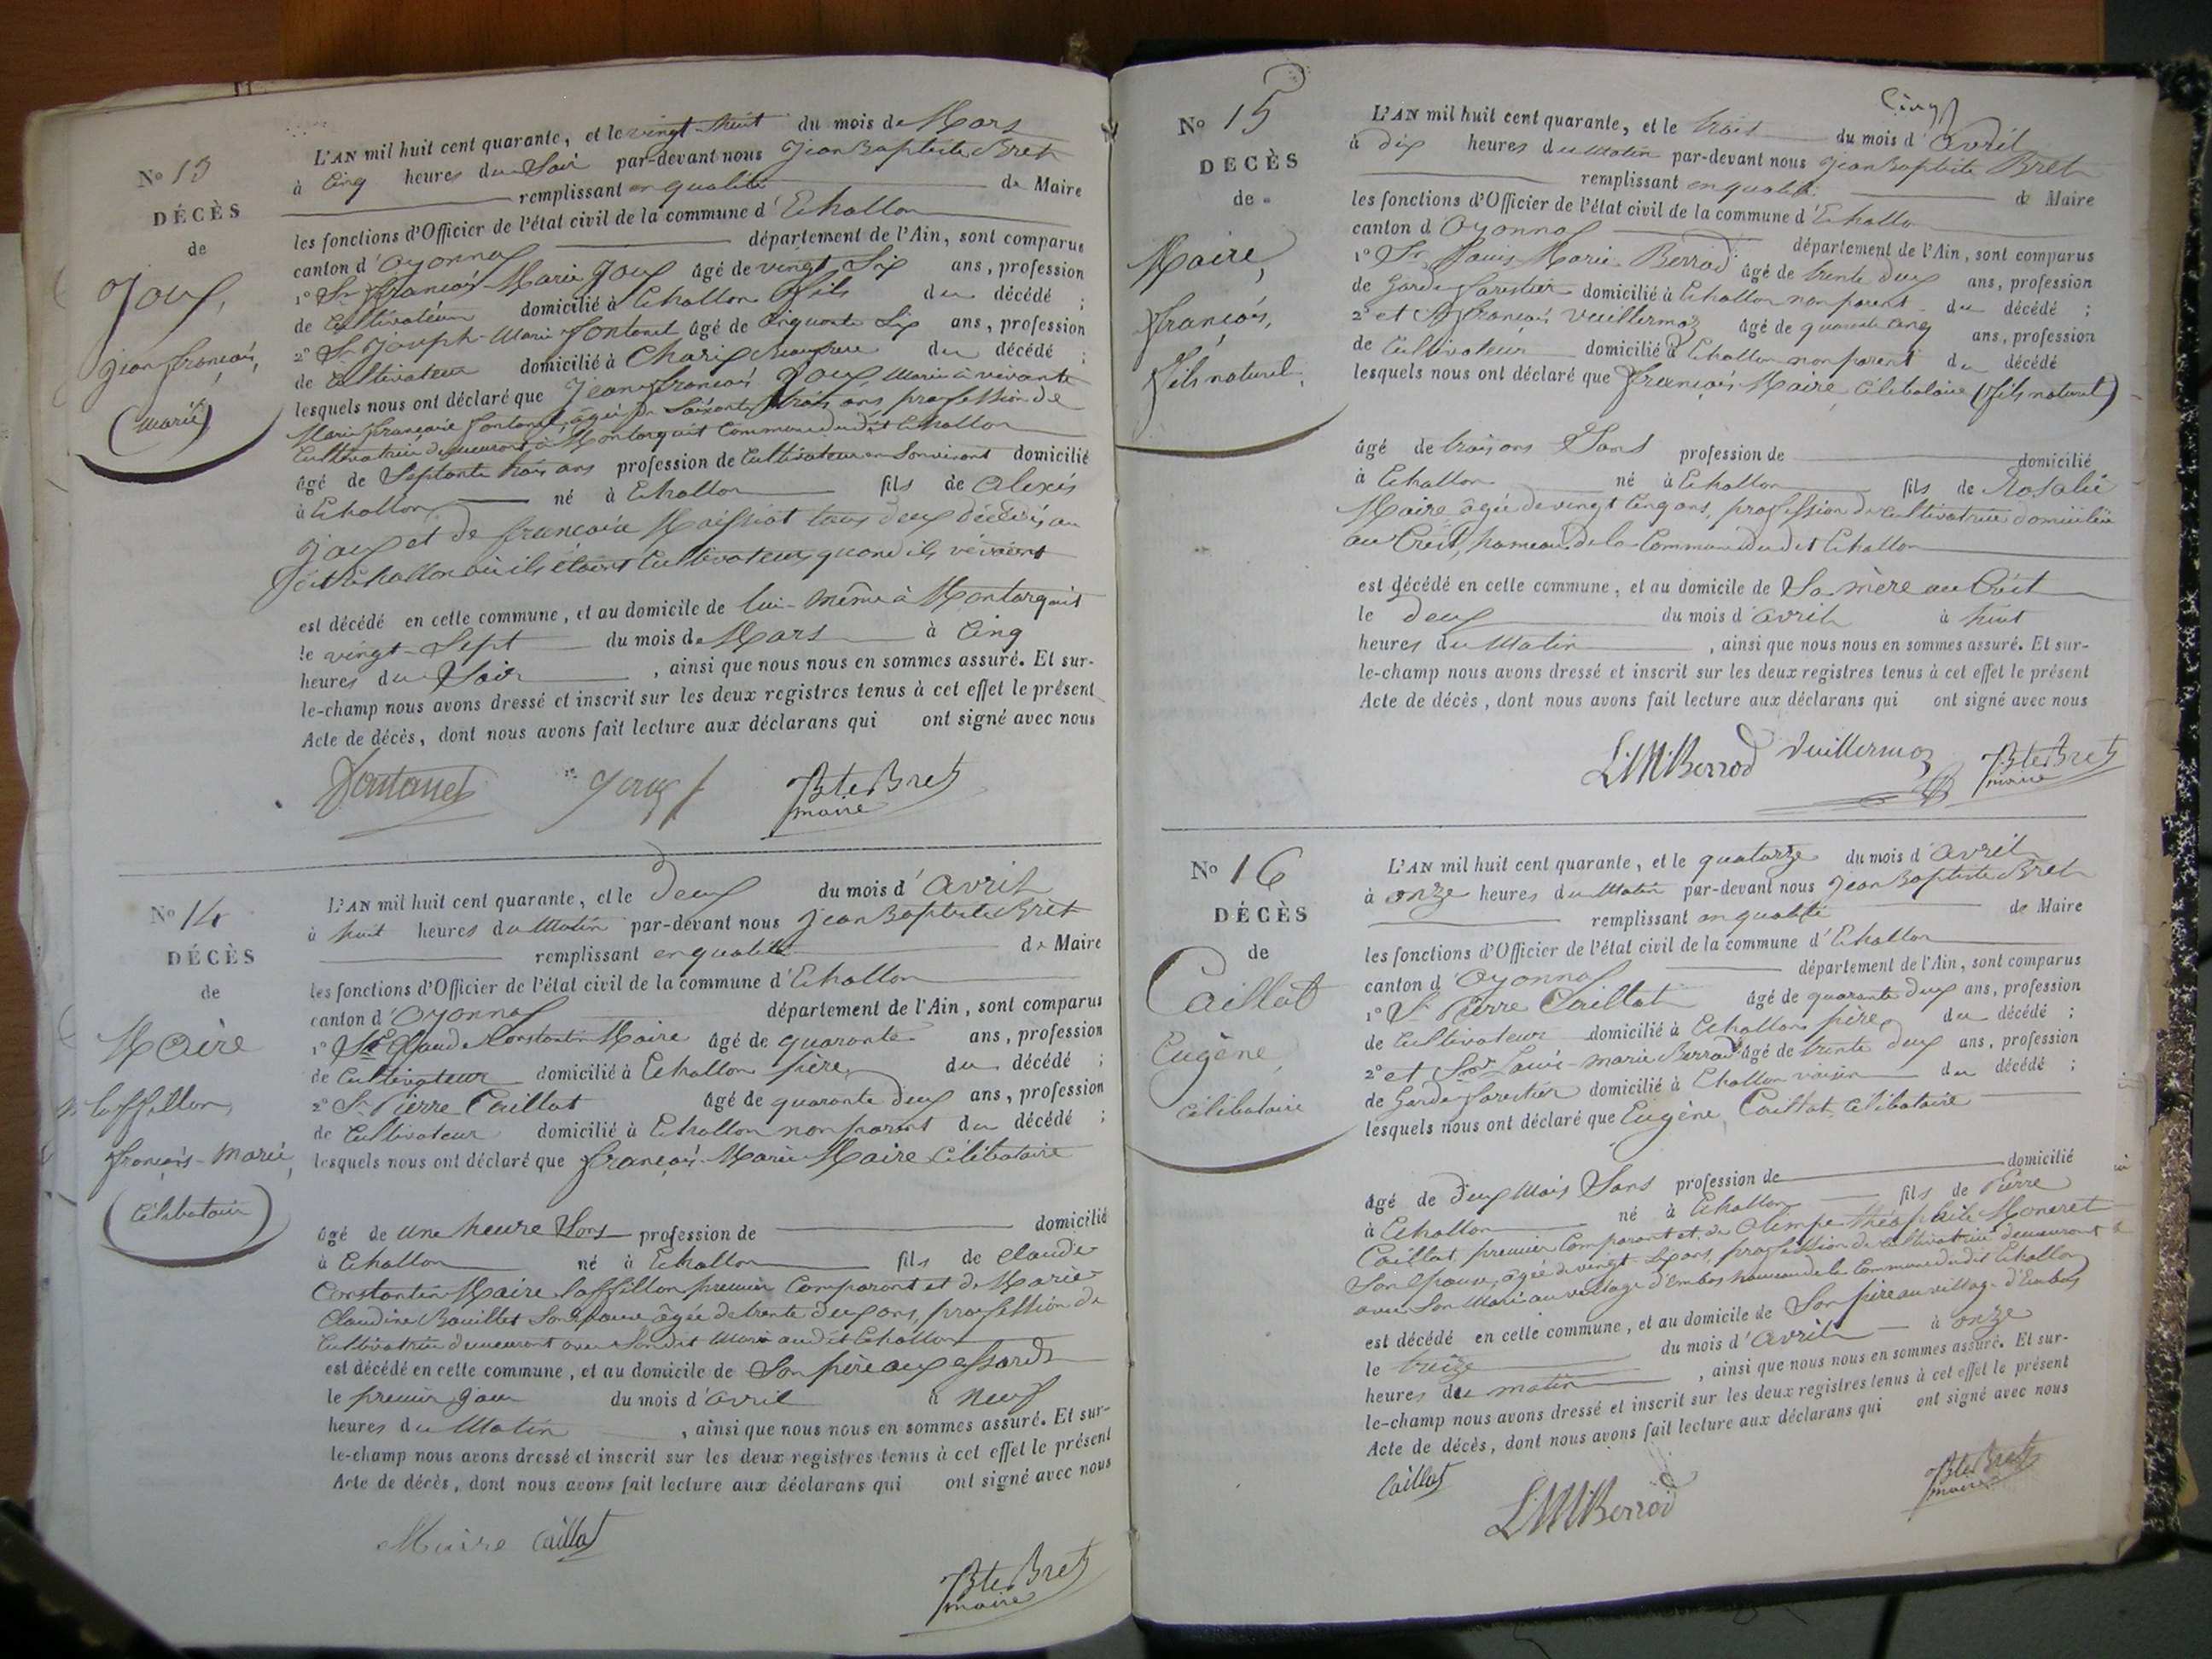 No 13
DÉCÈS
de
Joux,
Jean François,
(marié)
L'AN mil huit cent quarante, et le vingt-huit du mois de Mars
à Cinq heures du Soir par-devant nous Jean Baptiste Bret
remplissant en qualité de Maire
les fonctions d'Officier de l'état civil de la commune d'Echallon
canton d'Oyonnax département de l'Ain, sont comparus
1° Sr François-Marie Joux âgé de vingt Six ans, profession
de Cultivateur domicilié à Echallon fils du décédé ;
2° Sr Joseph-Marie Fontanet âgé de Cinquante Six ans, profession
de Cultivateur domicilié à Charix du décédé ;
lesquels nous ont déclaré que Jean-François Joux, Marié à vivante
Marie Françoise Fontanet, âgée de Soixante trois ans profession de
Cultivatrice demeurant à Montarquit Commune dudit Echallon
âgé de Septante trois ans profession de Cultivateur en Son vivant domicilié
à Echallon né à Echallon fils de Alexis
Joux et de Françoise Moissiat tous deux décédés au
dit Echallon où ils étaient Cultivateurs quand ils vivaient
est décédé en cette commune, et au domicile de lui-même à Montarquit
le vingt-Sept du mois de Mars à Cinq
heures du Soir , ainsi que nous nous en sommes assuré. Et sur-
le-champ nous avons dressé et inscrit sur les deux registres tenus à cet effet le présent
Acte de décès, dont nous avons fait lecture aux déclarans qui ont signé avec nous
Fontanet Joux Bte Bret
maire
No 14
DÉCÈS
de
Maire
laffillon,
François-Marie,
(Célibataire)
L'AN mil huit cent quarante, et le Deux du mois d'Avril
à huit heures du Matin par-devant nous Jean Baptiste Bret
remplissant en qualité de Maire
les fonctions d'Officier de l'état civil de la commune d'Echallon
canton d'Oyonnax département de l'Ain, sont comparus
1° Sr Claude Constantin Maire âgé de quarante ans, profession
de Cultivateur domicilié à Echallon père du décédé ;
2° Sr Pierre Caillat âgé de quarante deux ans, profession
de Cultivateur domicilié à Echallon non parent du décédé ;
lesquels nous ont déclaré que François-Marie Maire Célibataire
âgé de une heure Sans profession de domicilié
à Echallon né à Echallon fils de Claude
Constantin Maire laffillon premier Comparant et de Marie
Claudine Bouillet Son Epouse âgée de trente deux ans, profession de
Cultivatrice demeurant avec Sondit Mari audit Echallon
est décédé en cette commune, et au domicile de Son père aux essards
le premier jour du mois d'avril à neuf
heures du Matin , ainsi que nous nous en sommes assuré. Et sur-
le-champ nous avons dressé et inscrit sur les deux registres tenus à cet effet le présent
Acte de décès, dont nous avons fait lecture aux déclarans qui ont signé avec nous
Maire Caillat
Bte Bret
maire
Cinq
No 15
DÉCÈS
de
Maire,
François,
fils naturel,
L'AN mil huit cent quarante, et le trois du mois d'Avril
à dix heures du Matin par-devant nous Jean Baptiste Bret
remplissant en qualité de Maire
les fonctions d'Officier de l'état civil de la commune d'Echallon
canton d'Oyonnax département de l'Ain, sont comparus
1° Sr Louis Marie Berrod âgé de trente deux ans, profession
de Garde forestier domicilié à Echallon non parent du décédé ;
2° et Sr François Vuillermoz âgé de quarante Cinq ans, profession
de Cultivateur domicilié à Echallon non parent du décédé
lesquels nous ont déclaré que François Maire Célibataire (fils naturel)
âgé de trois ans Sans profession de domicilié
à Echallon né à Echallon fils de Rosalie
Maire âgée de vingt Cinq ans, profession de Cultivatrice domiciliée
au Crêt, hameau de la Commune dudit Echallon
est décédé en cette commune, et au domicile de Sa mère au Crêt
le deux du mois d'avril à huit
heures du Matin , ainsi que nous nous en sommes assuré. Et sur-
le-champ nous avons dressé et inscrit sur les deux registres tenus à cet effet le présent
Acte de décès, dont nous avons fait lecture aux déclarans qui ont signé avec nous
L M Berrod Vuillermoz Bte Bret
maire
No 16
DÉCÈS
de
Caillat
Eugène,
Célibataire
L'AN mil huit cent quarante, et le quatorze du mois d'Avril
à onze heures du Matin par-devant nous Jean Baptiste Bret
remplissant en qualité de Maire
les fonctions d'Officier de l'état civil de la commune d'Echallon
canton d'Oyonnax département de l'Ain, sont comparus
1° Sr Pierre Caillat âgé de quarante deux ans, profession
de Cultivateur domicilié à Echallon père du décédé ;
2° et Sr Louis-marie Berrod âgé de trente deux ans, profession
de Garde forestier domicilié à Echallon voisin du décédé ;
lesquels nous ont déclaré que Eugène Caillat, Célibataire
âgé de Deux Mois Sans profession de domicilié
à Echallon né à Echallon fils de Pierre
Caillat, premier Comparant et de Olimpe théophile Moneret
Son Epouse, âgée de vingt Six ans, profession de Cultivatrice demeurant
avec Son Mari au village d'Embos hameau de la Commune dudit Echallon
est décédé en cette commune, et au domicile de Son père au village d'Embos
le treize du mois d'Avril à onze
heures du matin , ainsi que nous nous en sommes assuré. Et sur-
le-champ nous avons dressé et inscrit sur les deux registres tenus à cet effet le présent
Acte de décès, dont nous avons fait lecture aux déclarans qui ont signé avec nous
Caillat L M Berrod Bte Bret
maire